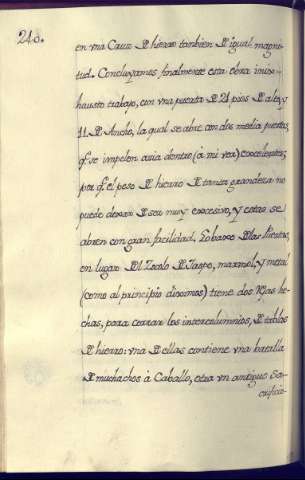 240.
en vna Cruz de hierro tambien de igual magni-
tud. Concluyamos finalmente esta obra inex-
hausto trabajo, con vna puerta de 21 pios de alto, y
11 de Ancho, la qual se abre con dos medias puertas,
qe. se impelen azia dentro (a mi ver) excelentes;
por qe. el peso de hierro de tanta grandeza no
puede dexar de ser muy excesivo, y estas se
abren con gran facilidad. Lo baxo de las puertas,
en lugar del Zocalo de Jaspe, marmol, y metal
(como al principio diximos) tiene dos Rejas he-
chas, para cerrar los intercolumnios, de tablas
de hierro: vna de ellas contiene vna batalla
de muchachos à Caballo, otra vn antiguo Sa-
crificio